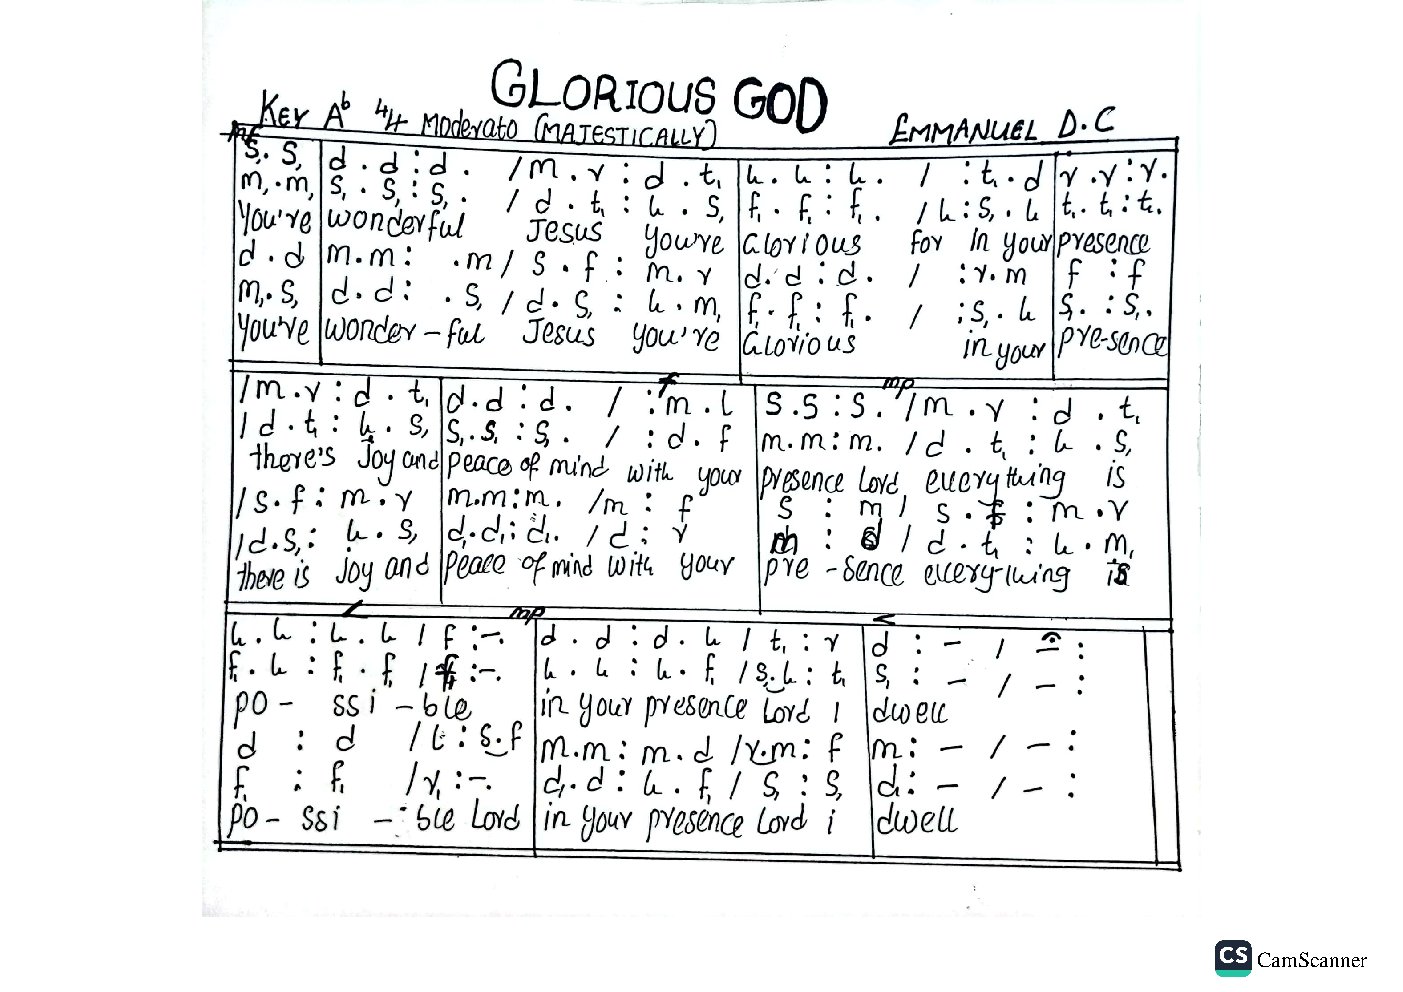 GLORIOUS GOD
KEY Ab 4/4 Moderato (MAJESTICALLY) EMMANUEL D.C
mf
s,. s, | d . d : d . / m . r : d . t, | l, . l, : l, . / : t, . d | r . r : r .
m, . m, | s, . s, : s, . / d . t, : l, . s, | f, . f, : f, . / l, : s, . l, | t, . t, : t, .
You're | wonderful Jesus you're | Glorious for in your | presence
d . d | m . m : . m / s . f : m . r | d . d : d . / : r . m | f : f
m, . s, | d . d : . s, / d . s, : l, . m, | f, . f, : f, . / : s, . l, | s, . : s, .
You've | wonder-ful Jesus you're | Glorious in your | pre-sence
f mp
/ m . r : d . t, | d . d : d . / : m . l | s . s : s . / m . r : d . t,
/ d . t, : l, . s, | s, . s, : s, . / : d . f | m . m : m . / d . t, : l, . s,
there's Joy and | peace of mind with your | presence Lord, everything is
/ s . f : m . r | m . m : m . / m : f | s : m / s . f : m . r
/ d . s, : l, . s, | d, . d, : d, . / d : r | m : d / d . t, : l, . m,
there is joy and | peace of mind with your | pre-sence every-thing is
mp <
l, . l, : l, . l, / f, : - . | d . d : d . l, / t, : r | d : - / - :
f, . l, : f, . f, / f, : - . | l, . l, : l, . f, / s, . l, : t, | s, : - / - :
po- ssi-ble | in your presence Lord I | dwell
d : d / l : s . f | m . m : m . d / r . m : f | m : - / - :
f, : f, / r, : - . | d, . d : l, . f, / s, : s, | d : - / - :
po-ssi-ble Lord | in your presence Lord i | dwell
CS CamScanner